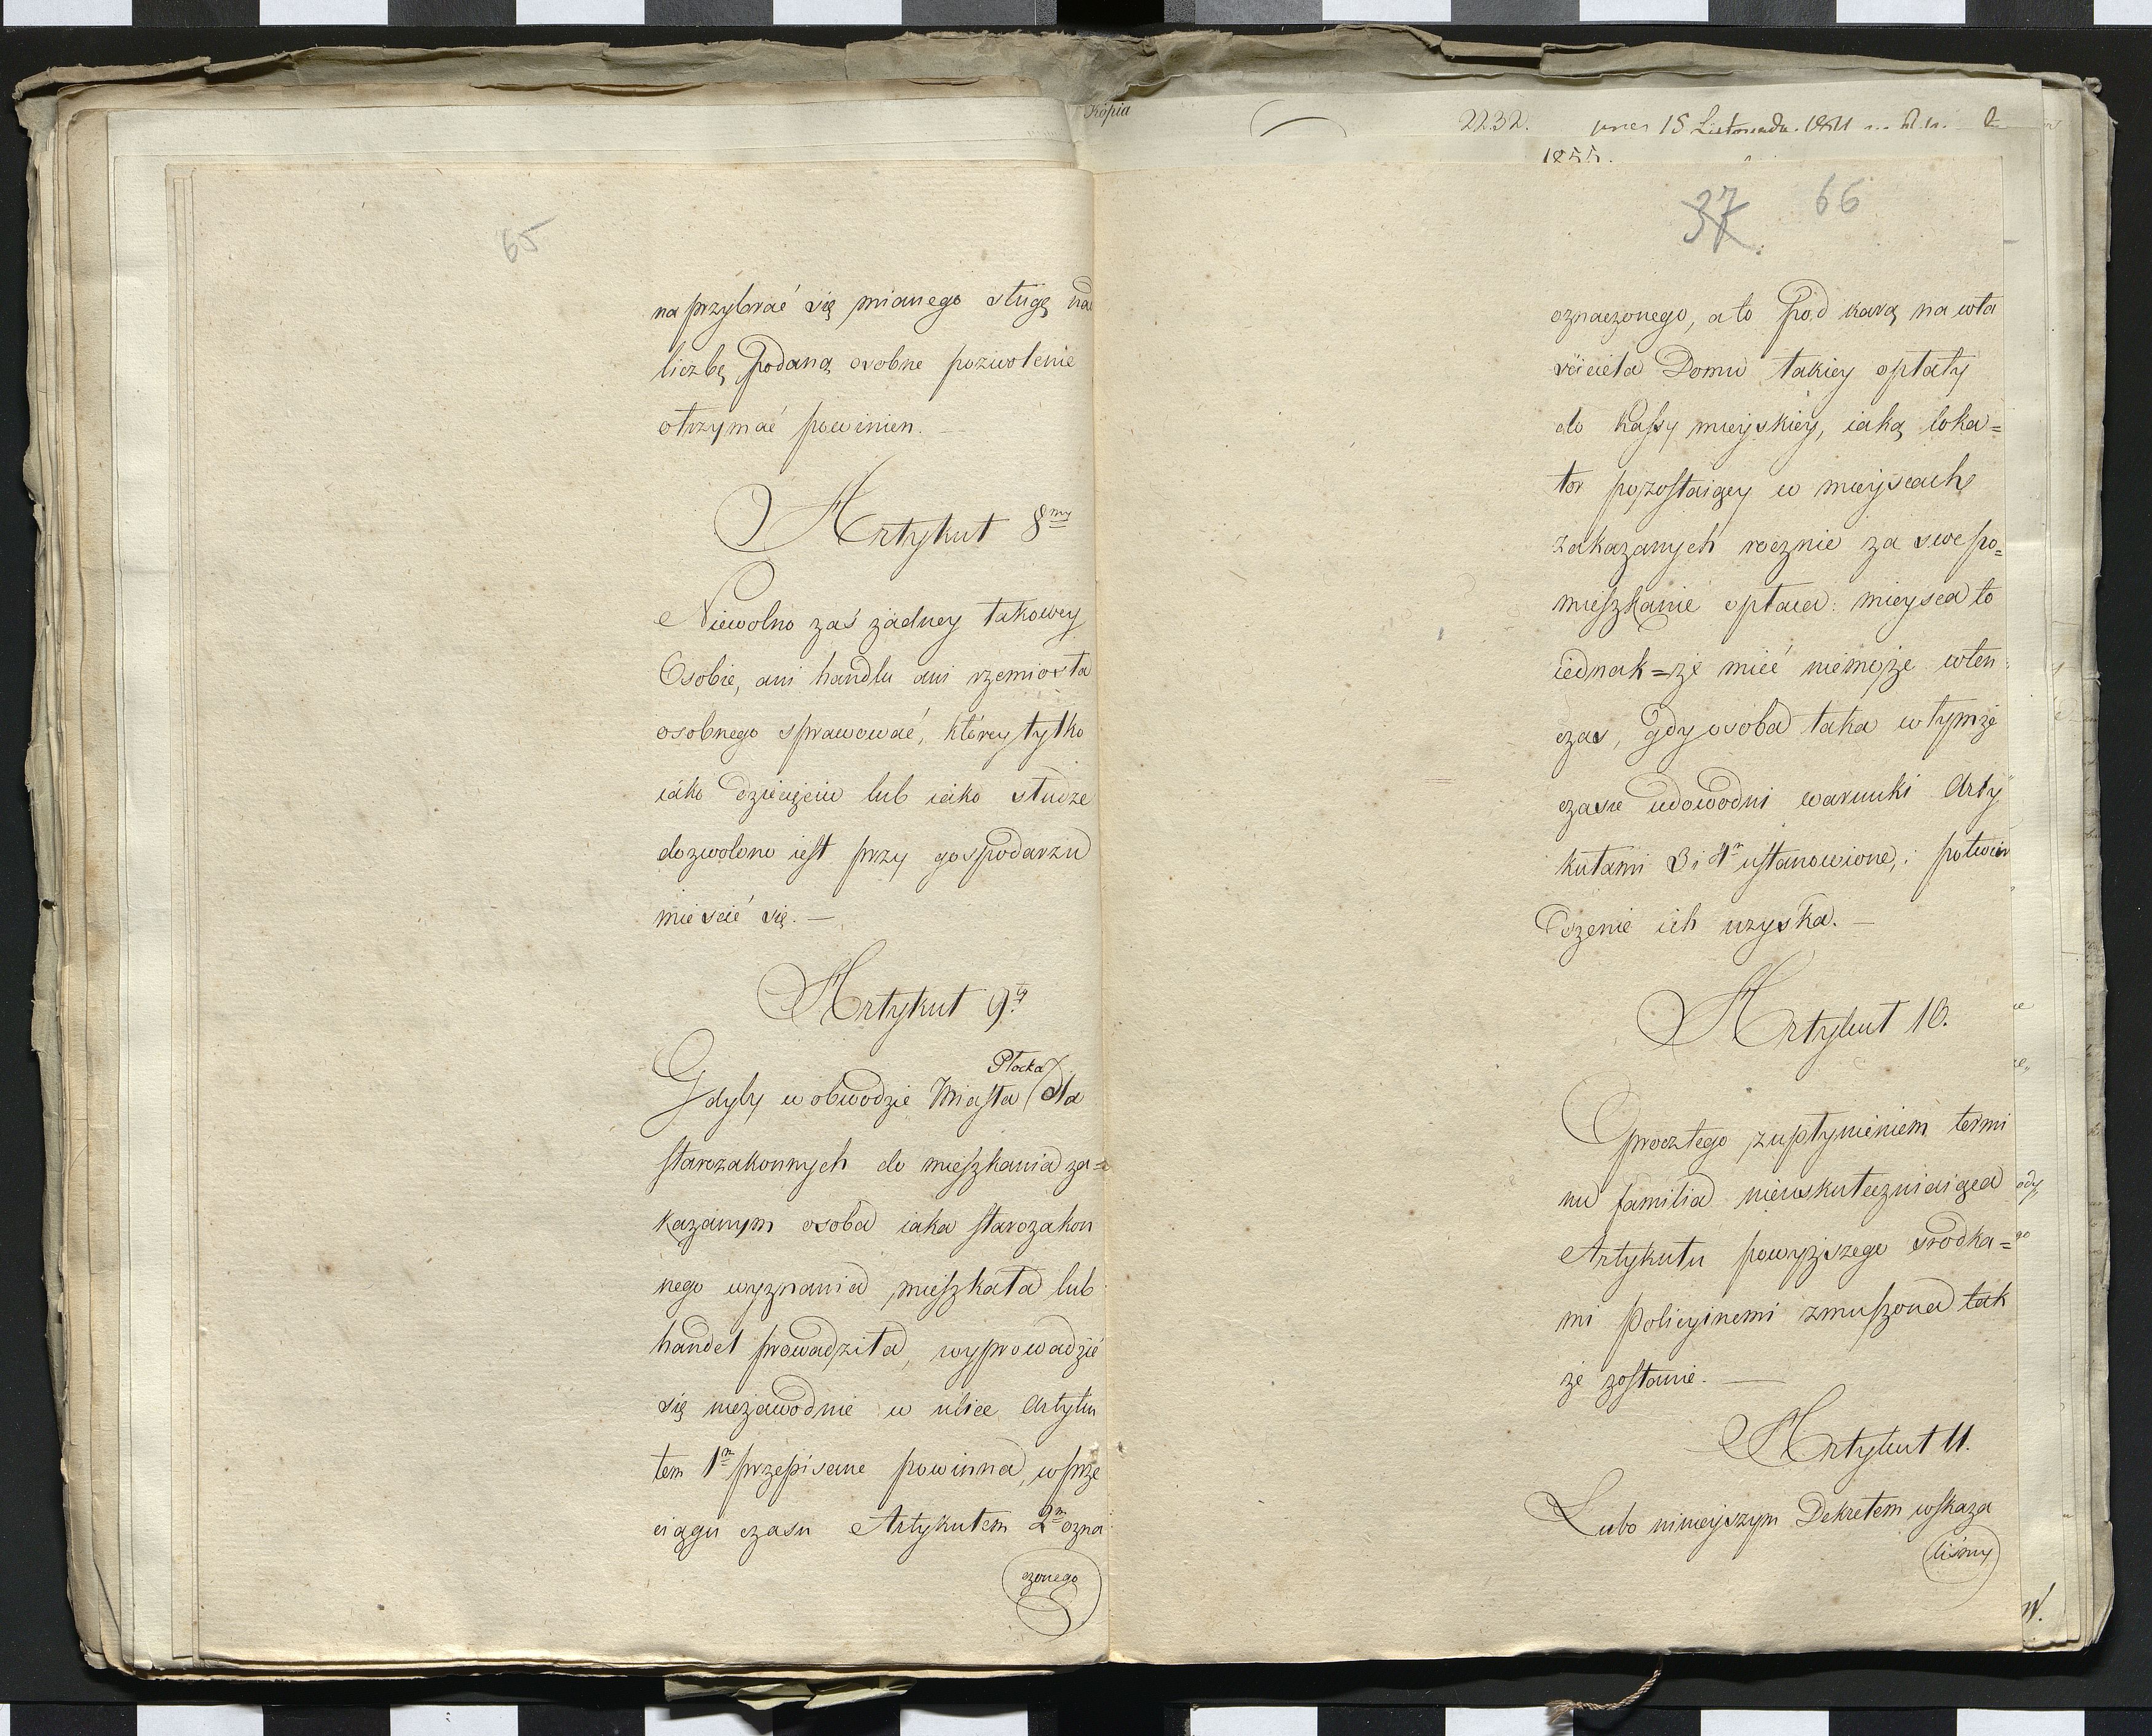 Kópia
2232.
15 Listopada
1855.
65
na przybrać się mianego sługę nad
liczbę podaną osobne pozwolenie
otrzymać powinien. —
Artykuł 8my
Niewolno zaś żadney takowey
Osobie, ani handlu ani rzemiosła
osobnego sprawować, którey tylko
iako dziecięciu lub iako słudze
dozwolono iest przy gospodarzu
mieścić się. —
Artykuł 9ty
Płocka
Gdyby w obwodzie Miasta dla
starozakonnych do mieszkania za=
kazanym osoba iaka starozakon
nego wyznania mieszkała lub
handel prowadziła, wyprowadzić
się niezawodnie w ulice Artyku
łem 1m przepisane powinna, w prze
ciągu czasu Artykułem 2m ozna
czonego
37 66
oznaczonego, a to pod karą na wła
ściciela Domu takiey opłaty
do Kassy mieyskiey, iaką loka=
tor pozostaiący w mieyscach
zakazanych rocznie za swe po=
mieszkanie opłaca: mieysca to
iednak=że mieć niemoże wten
czas, gdy osoba taka w tymże
czasie udowodni warunki Arty
kułami 3 i 4m ustanowione, i potwier
dzenie ich uzyska. —
Artykuł 10.
Oprócz tego z upłynieniem termi
nu familia nieuskuteczniaiąca
Artykułu powyższego środka=
mi Policyinemi zmuszona tak
że zostanie. —
Artykuł 11.
Lubo ninieyszym Dekretem wskaza
liśmy